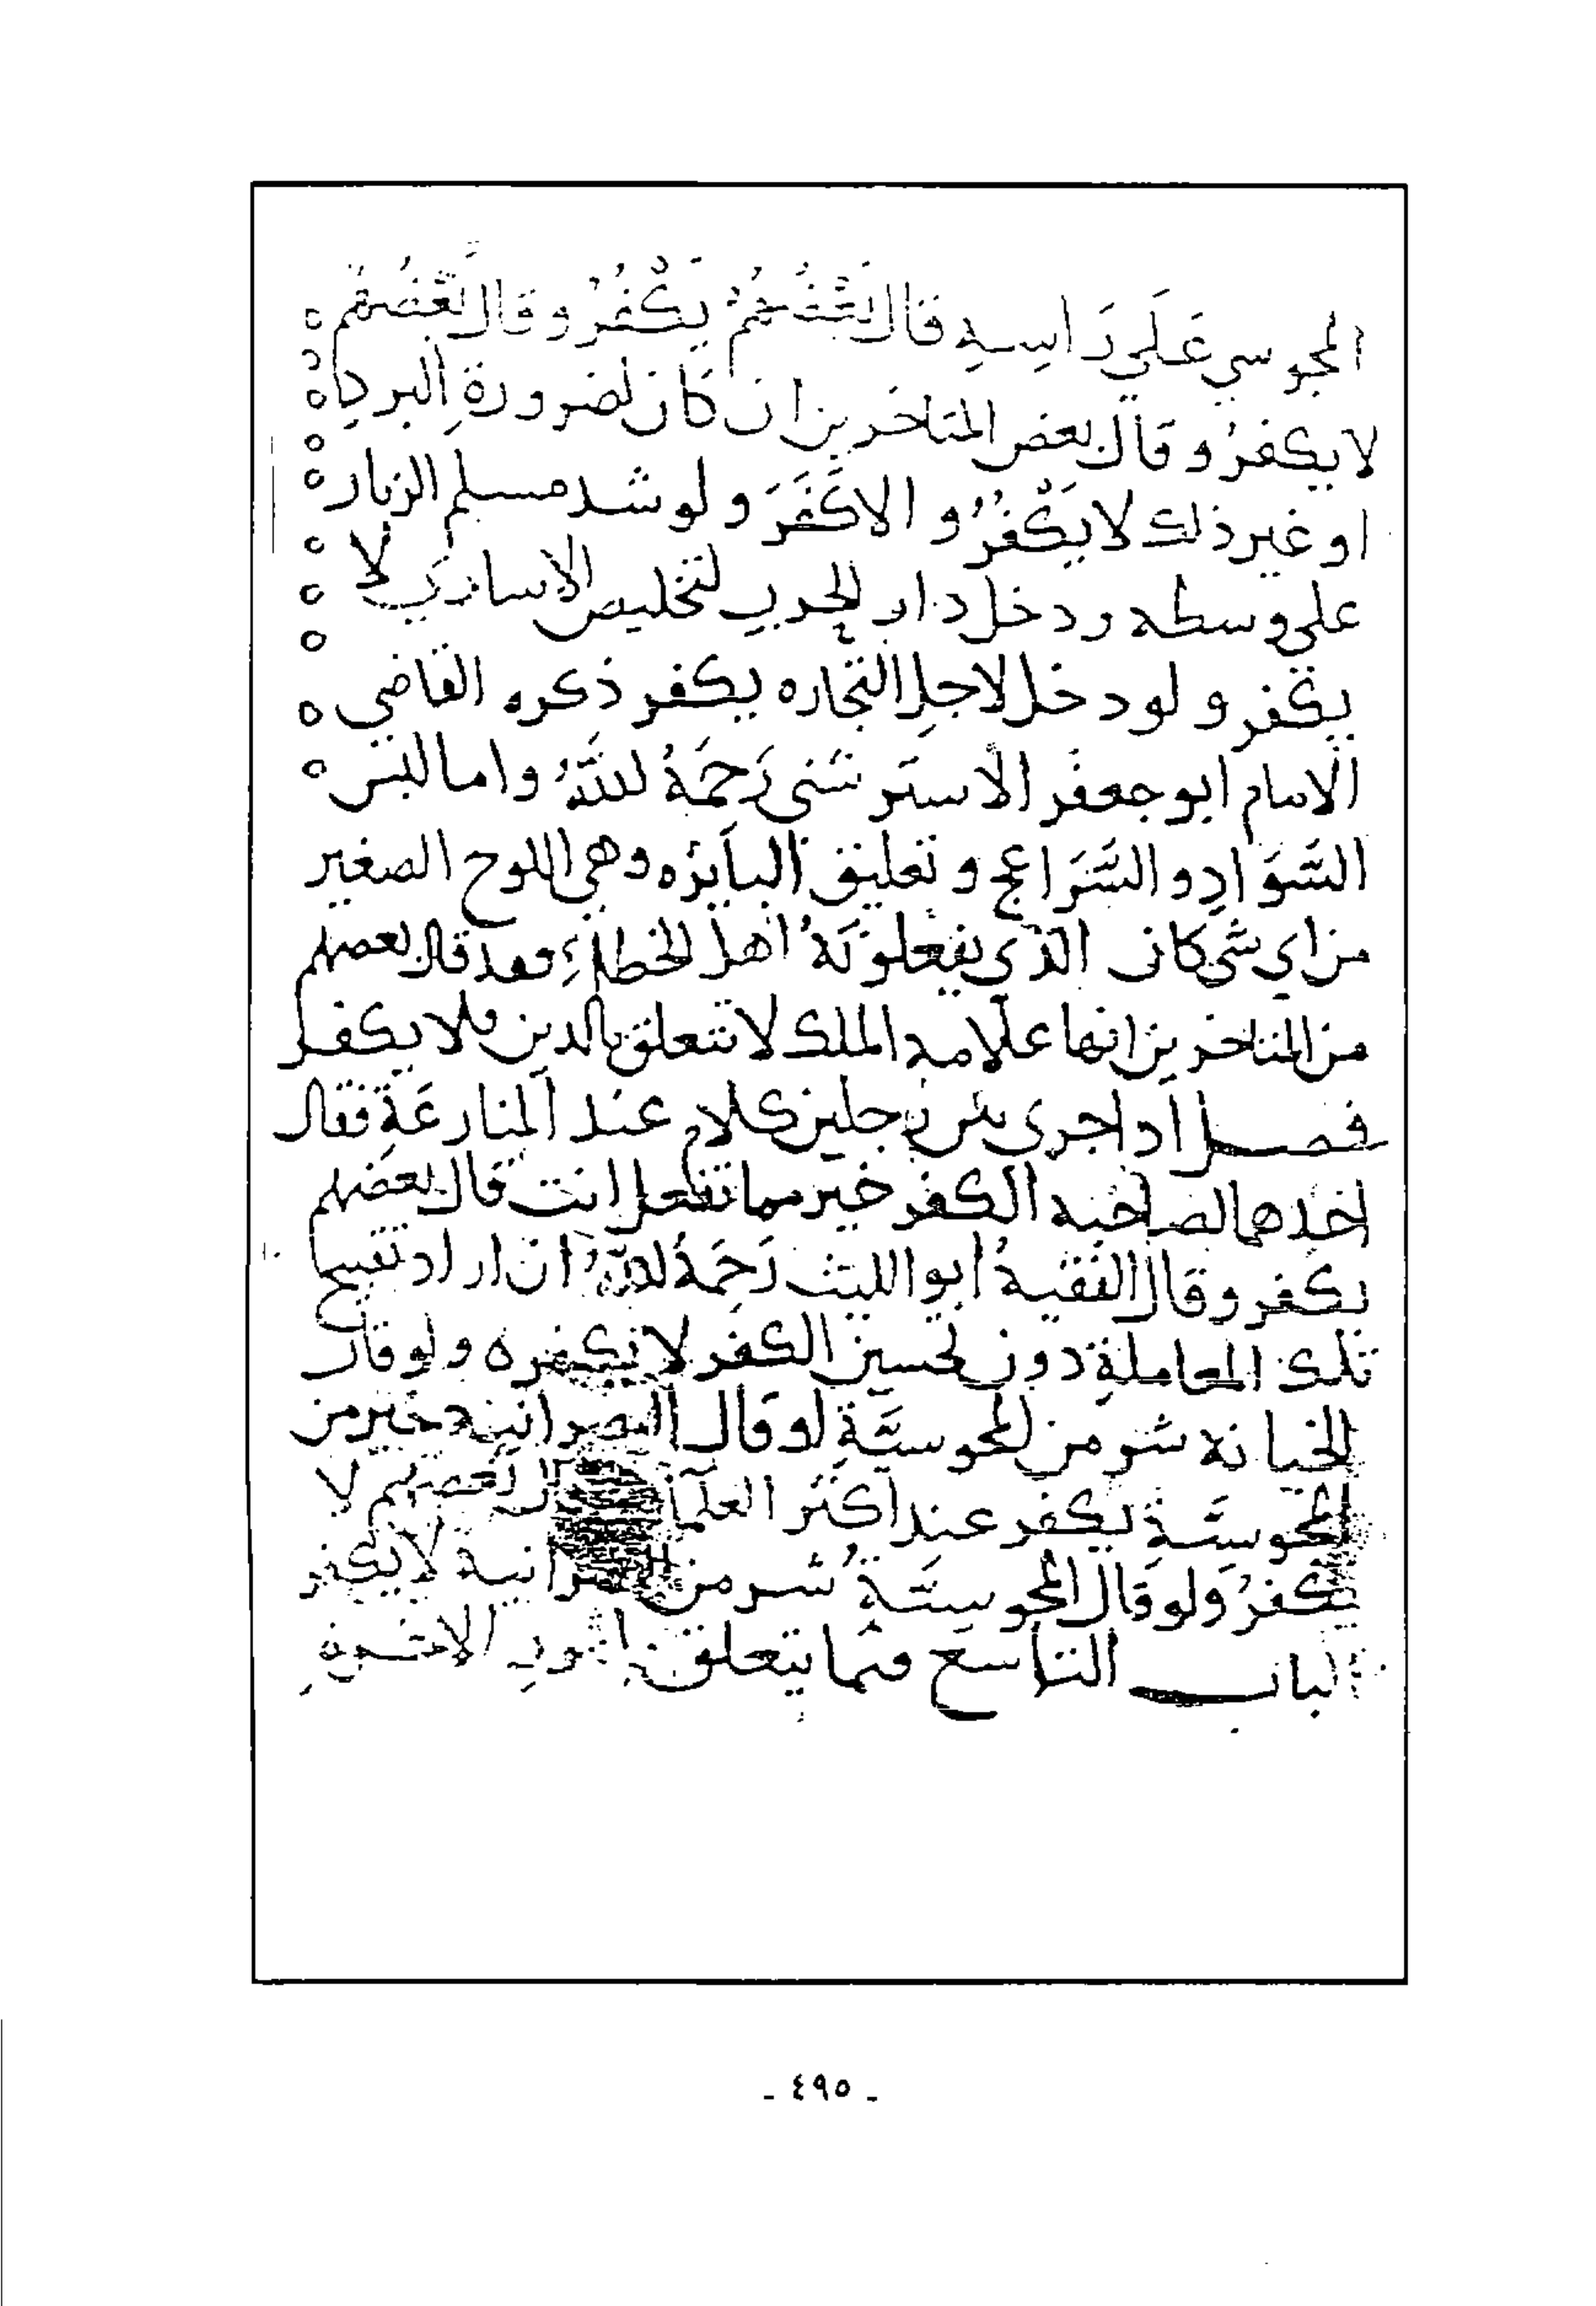 المجوسي عَلَي رَاسِهِ قَالَ بَعْضُهُمْ يَكْفُرُ وقَالَ بَعْضُهُمْ
لا يكفرُ وقال بعض المتاخرين ان كان لضرورةِ البردِ
او غير ذلك لا يَكْفُرُ و الا كَفَرَ و لو شد مسلم الزنار
على وسطه ودخل دار الحرب لتخليص الاساري لا
يكفر و لو دخل لاجل التجاره يكفر ذكره القاضي
الامام ابو جعفر الاستروشنى رَحِمَهُ اللهُ واما لبس
السَّوَادِ و السَّرَاعج و تعليق البايزه وهى اللوح الصغير
من اي شي كان الذي يفعلونَهُ اهل الخطاء فقد قال بعضهم
من المتاخرين انها علامه الملك لا تتعلق بالدين فلا يكفر
فصل اذا جرى بين رجلين كلام عند المنازعَةِ فقال
احدهما لصاحبه الكفر خير مما تفعل انت قال بعضهم
يكفر وقال الفقيهُ ابو الليث رَحِمَهُ اللهُ ان اراد تقبيح
تلك المعاملة دون تحسين الكفر لا يكفر ه ولو قال
الخيانه شر من المجوسيَّةِ لو قال النصرانيه خير من
المجوسيَّةِ يكفر عند اكثر العلمآ قال بعضهم لا
يكفرُ ولو قال المجوسيَّةُ شر من النصرانية لا يكفر
الباب التاسع فيما يتعلق بامور الاخرة
- ٤٩٥ -